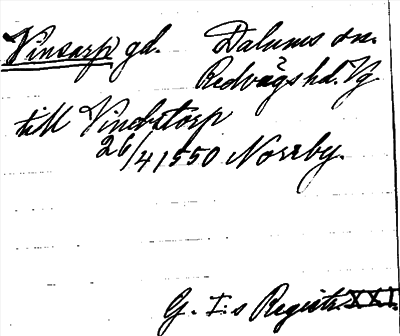 Vinsarp gd. Dalums sn.
Redvägs hd. Vg
till Vinbstorp
26/4 1550 Norrby.
G. I:s Registr. XXI.